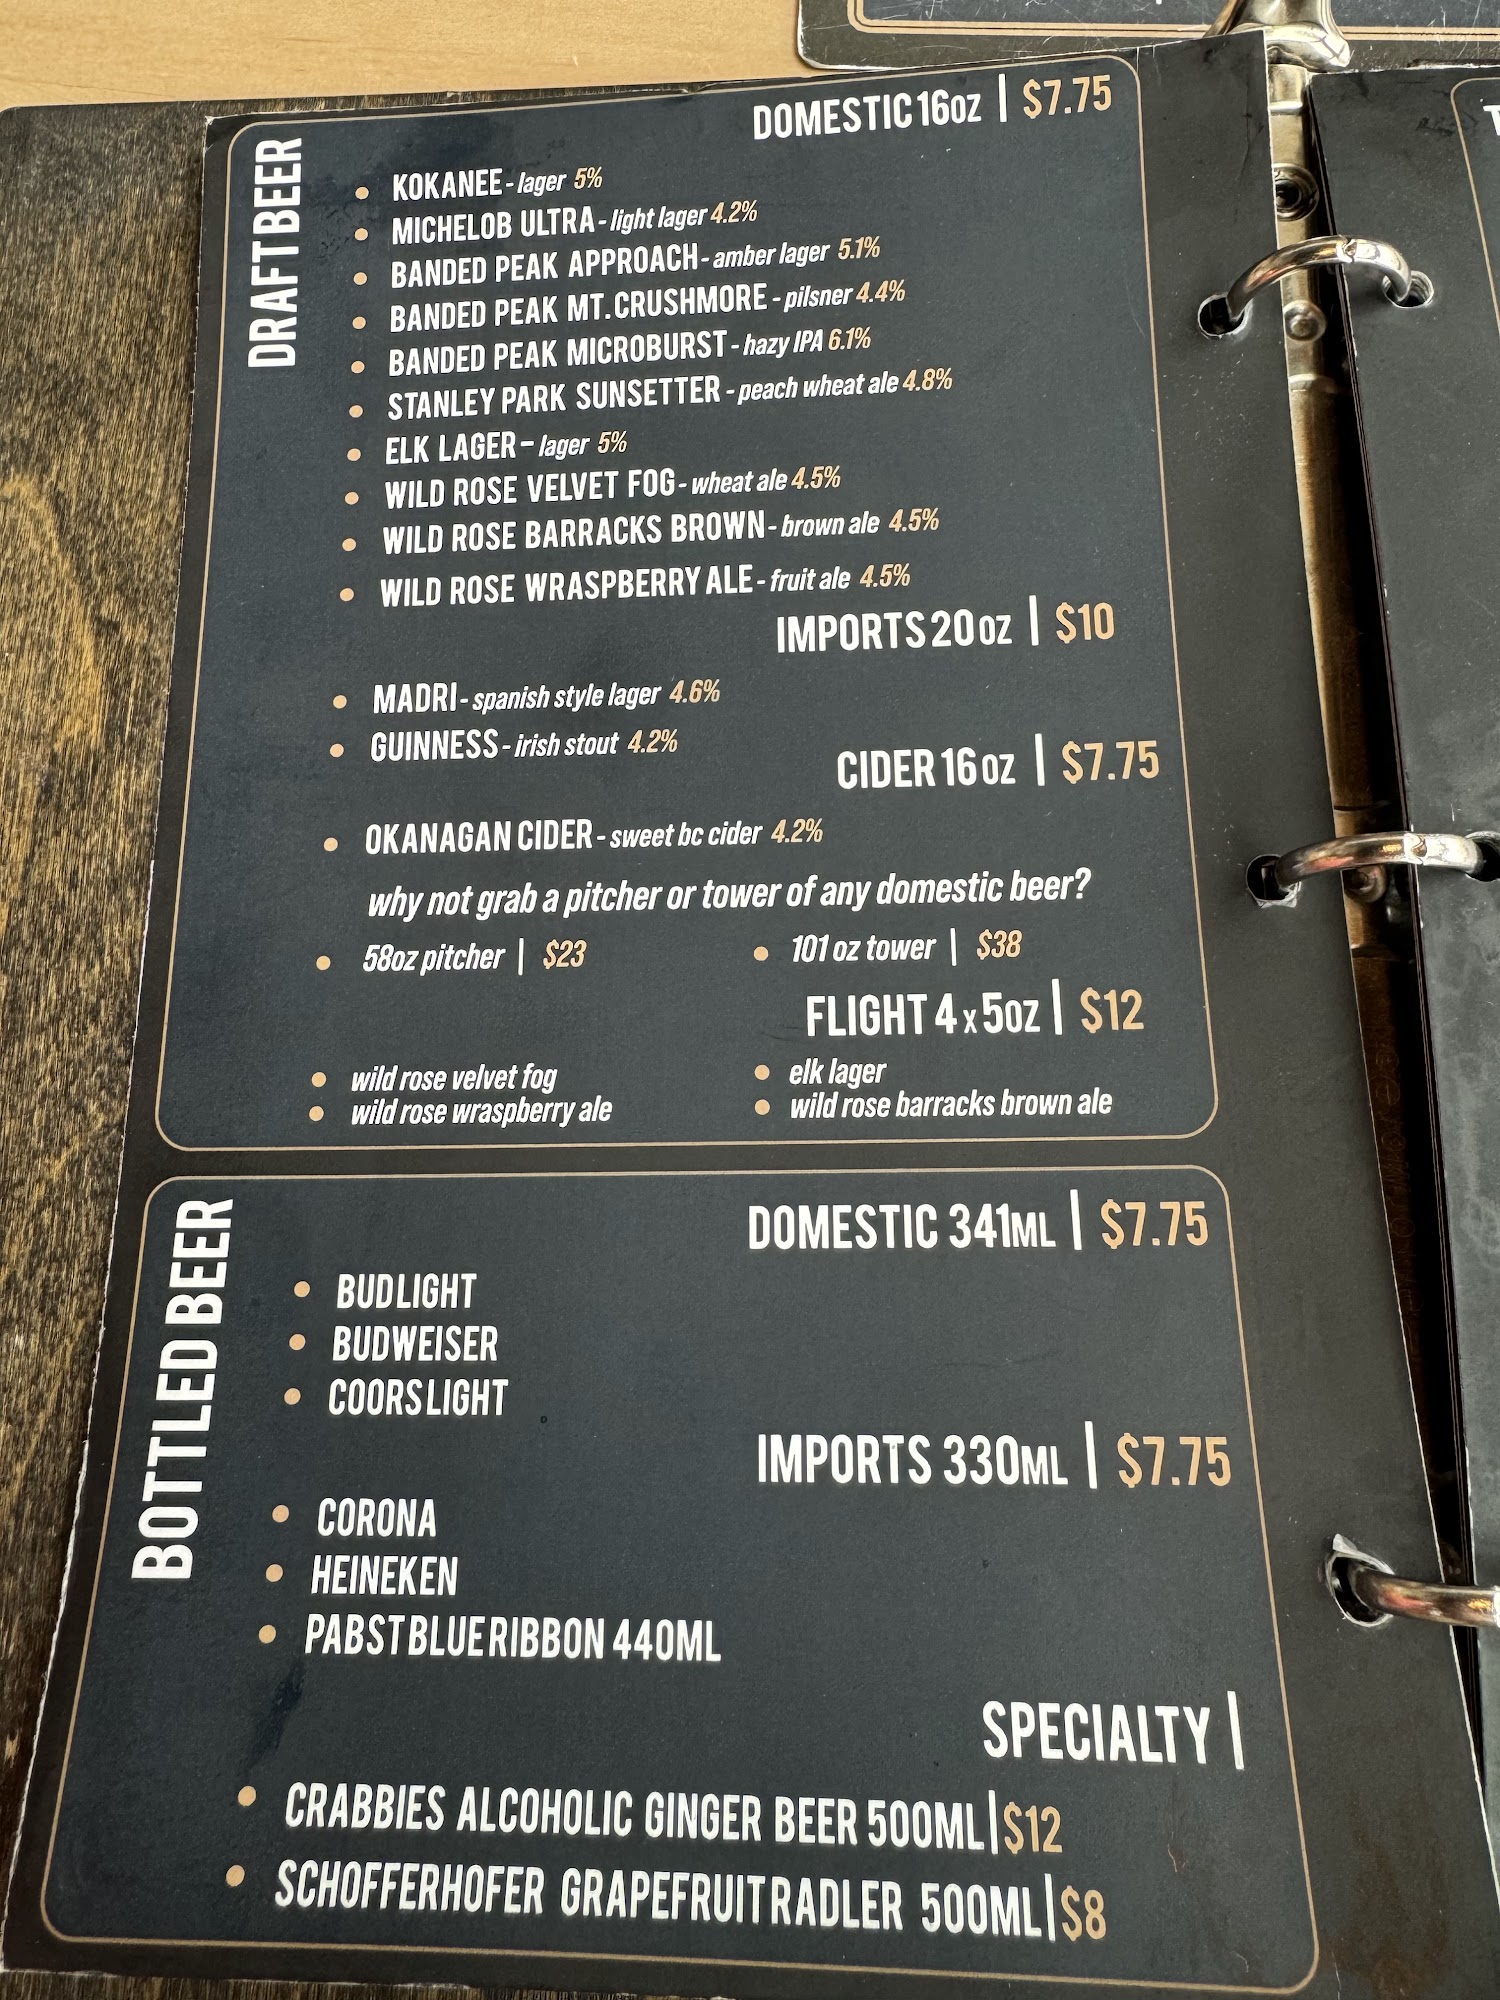 DRAFT BEER
DOMESTIC 16OZ | $7.75
KOKANEE - lager 5%
MICHELOB ULTRA - light lager 4.2%
BANDED PEAK APPROACH - amber lager 5.1%
BANDED PEAK MT. CRUSHMORE - pilsner 4.4%
BANDED PEAK MICROBURST - hazy IPA 6.1%
STANLEY PARK SUNSETTER - peach wheat ale 4.8%
ELK LAGER - lager 5%
WILD ROSE VELVET FOG - wheat ale 4.5%
WILD ROSE BARRACKS BROWN - brown ale 4.5%
WILD ROSE WRASPBERRY ALE - fruit ale 4.5%
IMPORTS 20 OZ | $10
MADRI - spanish style lager 4.6%
GUINNESS - irish stout 4.2%
CIDER 16 OZ | $7.75
OKANAGAN CIDER - sweet bc cider 4.2%
why not grab a pitcher or tower of any domestic beer?
58oz pitcher | $23
101 oz tower | $38
FLIGHT 4 x 5OZ | $12
wild rose velvet fog
wild rose wraspberry ale
elk lager
wild rose barracks brown ale
BOTTLED BEER
DOMESTIC 341ML | $7.75
BUD LIGHT
BUDWEISER
COORS LIGHT
IMPORTS 330ML | $7.75
CORONA
HEINEKEN
PABST BLUE RIBBON 440ML
SPECIALTY |
CRABBIES ALCOHOLIC GINGER BEER 500ML | $12
SCHOFFERHOFER GRAPEFRUIT RADLER 500ML | $8